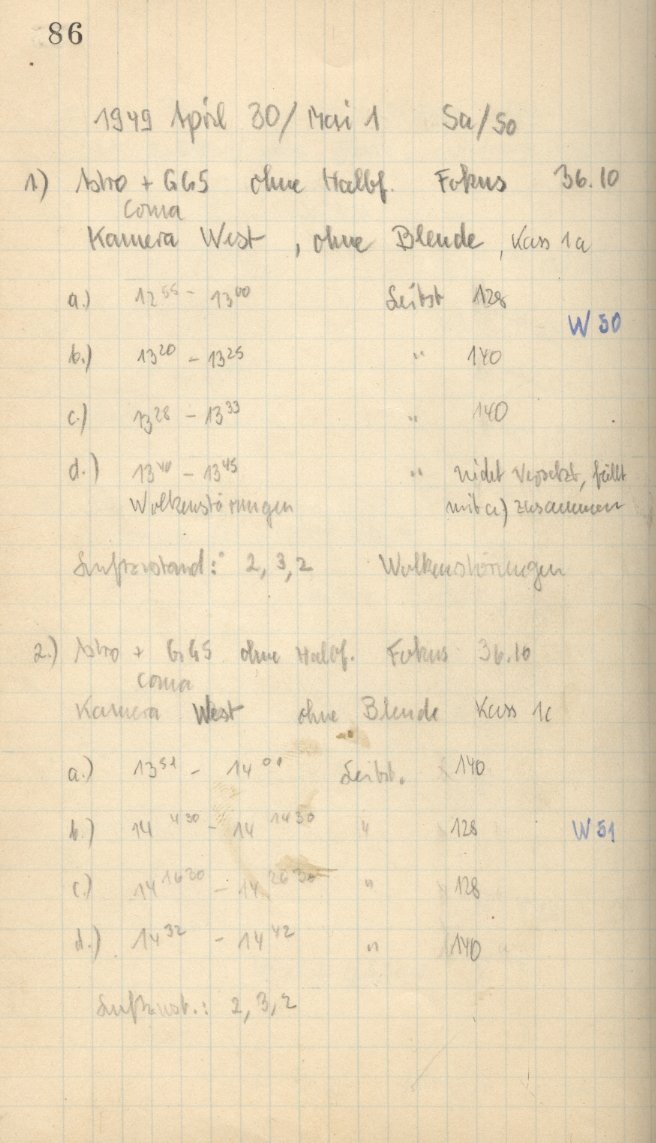 86
1949 April 30/Mai 1 Sa/So
1) Astro + GG5 ohne Halbf. Fokus 36.10
Coma
Kamera West, ohne Blende, Kass 1a
a.) 12 55 - 13 00 Leitst 128
W 50
b.) 13 20 - 13 25 " 140
c.) 13 28 - 13 33 " 140
d.) 13 40 - 13 45 " nicht versetzt, fällt
Wolkenstörungen mit a) zusammen
Luftzustand: 2, 3, 2 Wolkenstörungen
2.) Astro + GG5 ohne Halbf. Fokus 36.10
Coma
Kamera West ohne Blende Kass 1c
a.) 13 51 - 14 01 Leitst. 140
b.) 14 4 30 - 14 14 30 " 128 W 51
c.) 14 16 30 - 14 26 30 " 128
d.) 14 32 - 14 42 " 140
Luftzust.: 2, 3, 2